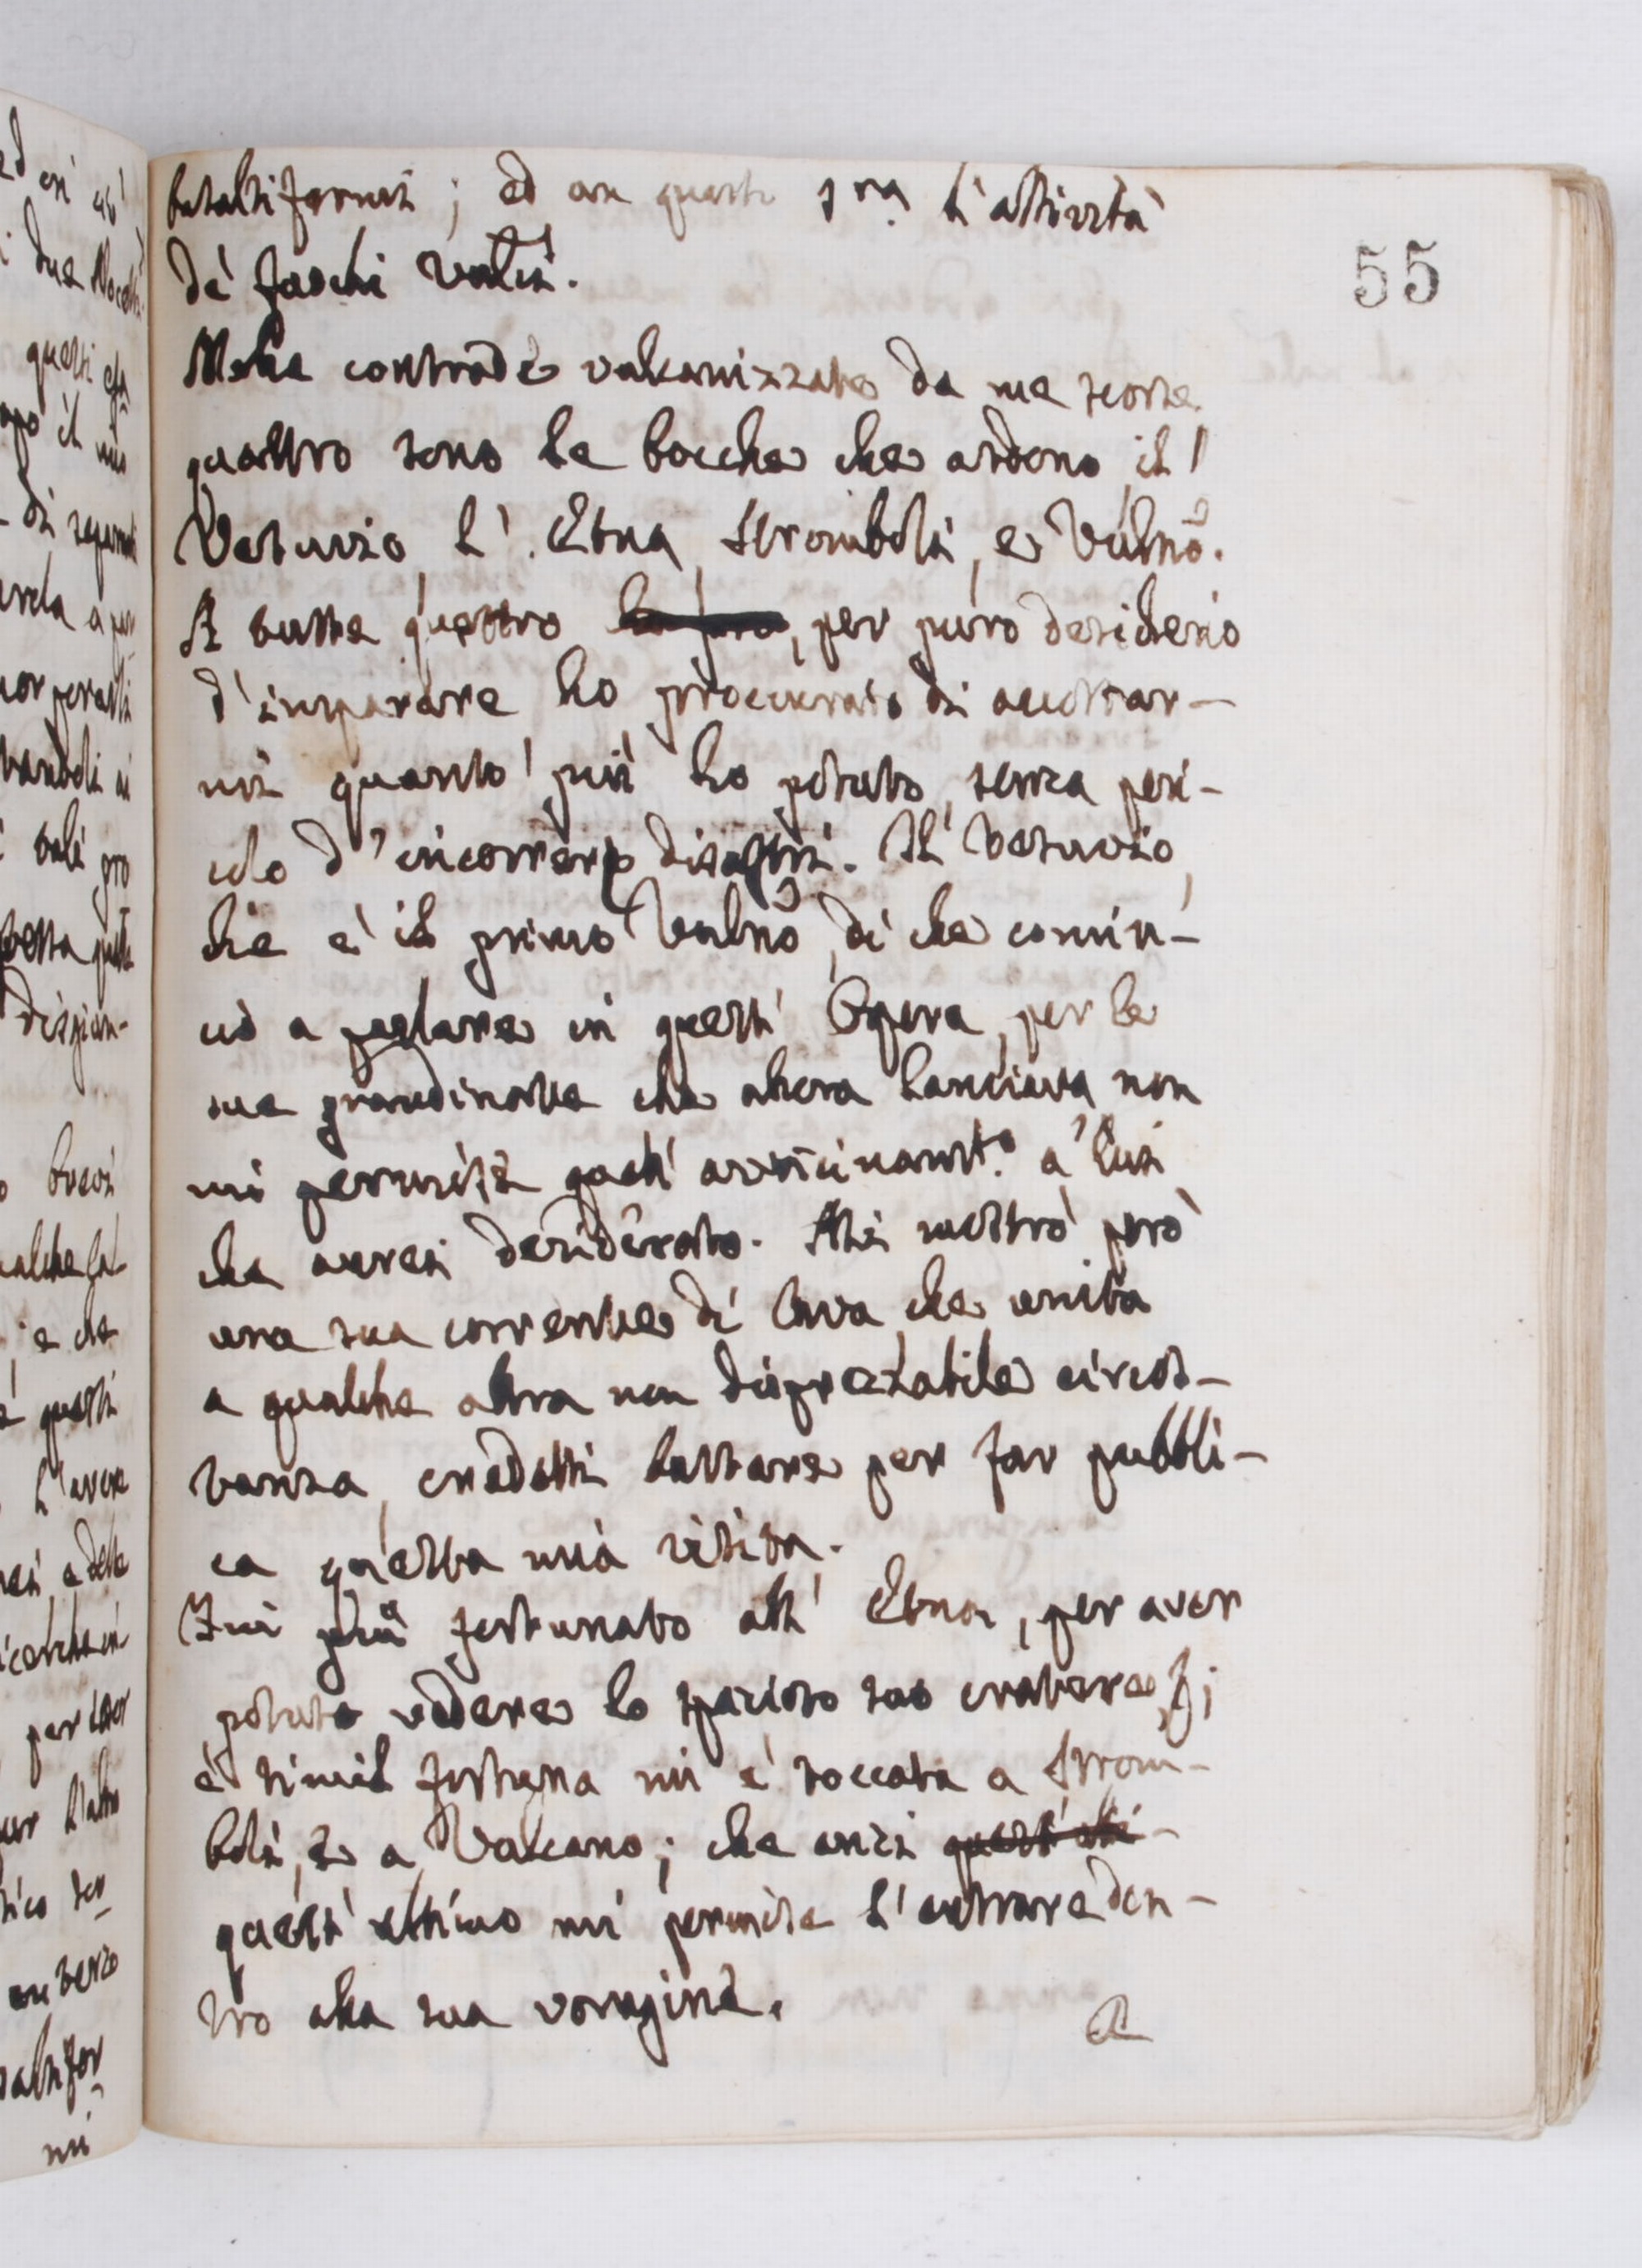 basaltiformi; ed con questi s.ra l'attività
de' fuochi vulci.
55
Nelle contrade vulcanizzate da me scorse
quattro sono le bocche che ardono, il
Vesuvio, l'Etna, Stromboli, e Vulno.
A tutte quattro, per puro desiderio
d'imparare ho procurato di accostar-
mi quanto più ho potuto, senza peri-
colo d'incorrere disastri. Il Vesuvio,
che è il primo Vulno, di che comin-
cio a parlare in quest'Opera, per le
sue grandinate che allora lanciava non
mi permise quell'avvicinamt.o a lui
che averei desiderato. Mi mostrò però
una sua corrente di lava che unita
a qualche altra non disprezzabile circos-
tanza, credetti bastare per far pubbli-
ca questa mia visita.
Fui più fortunato all'Etna, per aver
potuto vedere lo spazioso suo cratere;
e simil fortuna mi è toccata a Strom-
boli, e a Vulcano; che anzi quest'ulti-
quest'ultimo mi permise l'entrare den-
tro alla sua voragine.
A